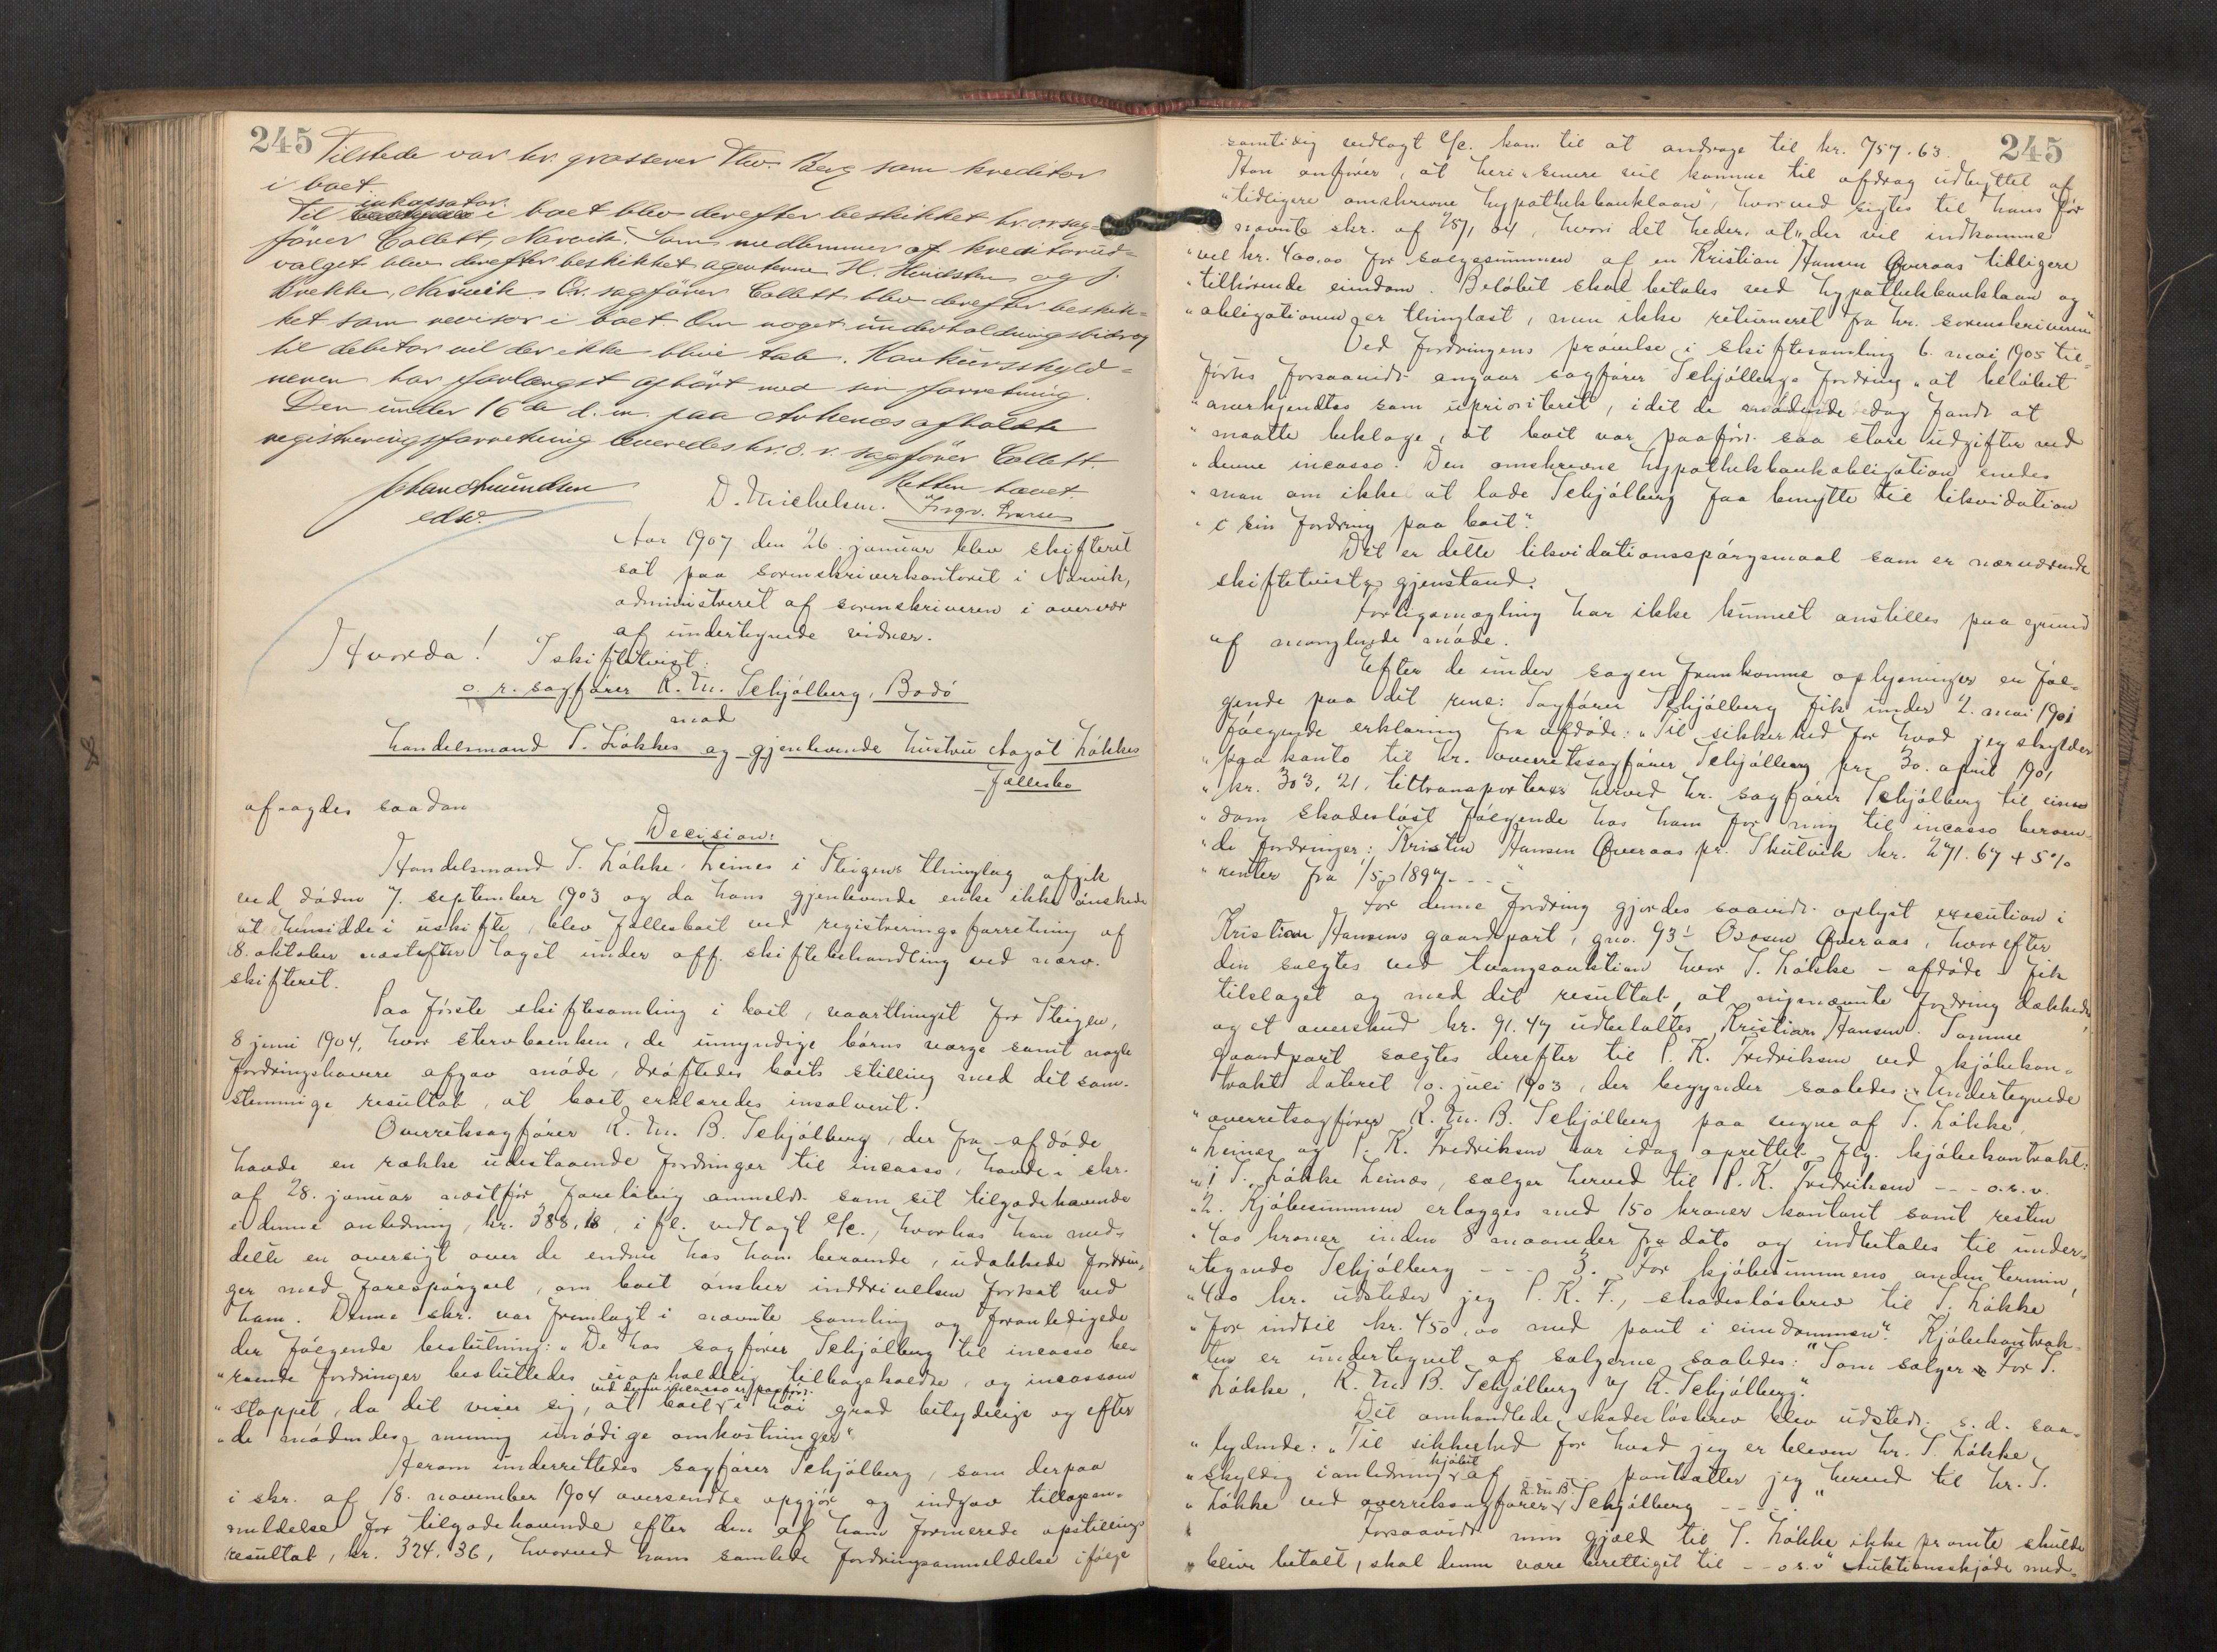 245
Tilstede var hr. grosserer Thv. Berg som kreditor
i boet.
inkassator
Til i boet blev derefter beskikket hr. o.r.sag-
fører Collett, Narvik. Som medlemmer af kreditorud-
valget blev derefter beskikket agenterne H. og J.
Brekke, Narvik. Or. sagfører Collett blev derefter beskik-
ket som revisor i boet. Om noget underholdningsbidrag
til debitor vil der ikke blive tale. Konkursskyld-
neren har forlængst ophørt med sin forretning.
Den under 16de d. m. paa Ankenes afholdte
registreringsforretning leveredes hr. o. r. sagfører Collett.
Retten hævet.
Johan Amundsen
edsv.
D. Michelsen. Ingv. Larsen
Aar 1907 den 26. januar blev skifteret
sat paa sorenskriverkontoret i Narvik,
administreret af sorenskriveren i overvær
af undertegnede vidner.
Hvorda! I skiftetvist:
o. r. sagfører K. M. Schjølberg, Bodø
mod
handelsmand T. Løkkes og gjenlevende hustru Aagot Løkkes
fællesbo
afsagdes saadan
Decision:
Handelsmand T. Løkke, Leines i Steigens thinglag afgik
ved døden 7. september 1903 og da hans gjenlevende enke ikke ønskede
at hensidde i uskifte, blev fællesboet ved registreringsforretning af
8. oktober næstefter taget under off. skiftebehandling ved nærv.
skifteret.
Paa første skiftesamling i boet, vaarthinget for Steigen,
8 juni 1904, hvor stervboenken, de umyndige børns værge samt nogle
fordringshavere afgav møde, drøftedes boets stilling med det sam-
stemmige resultat, at boet erklæredes insolvent.
Overretssagfører K. M. B. Schjølberg, der fra afdøde
havde en række udestaaende fordringer til incasso, havde i skr.
af 28. januar næstfør foreløbig anmeldt som sit tilgodehavende
i denne anledning, kr. 388,18, ifl. vedlagt c/c., hvorhos han med-
delte en oversigt over de endnu hos ham beroende, udækkede fordrin-
ger med forespørgsel, om boet ønsker inddrivelsen fortsat ved
ham. Denne skr. var fremlagt i nævnte samling og foranledigede
der følgende beslutning: „De hos sagfører Schjølberg til incasso be-
„roende fordringer besluttedes uopholdelig tilbagekaldte, og incassoen
ved denne incasso er paaført
„stoppet, da det viser sig, at boet i høi grad betydelige og efter
„de mødendes mening unødige omkostninger“.
Herom underrettedes sagfører Schjølberg, som derpaa
i skr. af 18. november 1904 oversendte opgjør og indgav tillægsan-
meldelse for tilgodehavende efter den af ham formerede opstillings
resultat, kr. 324.36, hvorved hans samlede fordringsanmeldelse ifølge
245
samtidig vedlagt c/c. kom til at andrage til kr. 757.63.
Han anfører, at heri „senere vil komme til afdrag udbyttet af
„tidligere omskrevne hypothekbanklaan“, hvorved sigtes til hans før
nævnte skr. af 28/1 04, hvori det heder, at „der vil indkomme
„vel kr. 400,00 for salgssummen af en Kristian Hansen Øveraas tidligere
„tilhørende eiendom. Beløbet skal betales ved hypothekbanklaan og
„obligationen er thinglæst, men ikke returneret fra hr. sorenskriveren“
Ved fordringens prøvelse i skiftesamling 6. mai 1905 til-
førtes forsaavidt angaar sagfører Schjølbergs fordring „at beløbet
„anerkjendtes som uprioriteret, idet de mødende idag fandt at
„maatte beklage, at boet var paaført saa store udgifter ved
„denne incasso. Den omskrevne hypothekbankobligation enedes
„man om ikke at lade Schjølberg faa benytte til likvidation
„i sin fordring paa boet“.
Det er dette likvidationsspørgsmaal som er nærværende
skiftetvists gjenstand.
Forligsmægling har ikke kunnet anstilles paa grund
af manglende møde.
Efter de under sagen fremkomne oplysninger er føl-
gende paa det rene: Sagfører Schjølberg fik under 2. mai 1901
følgende erklæring fra afdøde: „Til sikkerhed for hvad jeg skylder
„paa konto til hr. overretssagfører Schjølberg pr. 30. april 1901
„kr. 303,21, tiltransporteres herved hr. sagfører Schjølberg til eien-
„dom skadesløst følgende hos ham for mig til incasso beroen-
„de fordringer: Kristen Hansen Øveraas pr. Skutvik kr. 271.67 + 5%
„renter fra 1/5 1897 - - - “
For denne fordring gjordes saavidt oplyst execution i
Kristian Hansens gaardpart, gno. 93 Øveraas, hvorefter
den solgtes ved tvangsauktion hvor T. Løkke - afdøde - fik
tilslaget og med det resultat, at nysnævnte fordring dækkedes
og et overskud kr. 91.47 udbetaltes Kristian Hansen. Samme
gaardpart solgtes derefter til P. K. Fredriksen ved kjøbekon-
trakt dateret 10. juli 1903, der begynder saaledes: „Undertegnede
„overretssagfører K. M. B. Schjølberg paa vegne af T. Løkke,
„Leines og P. K. Fredriksen har idag oprettet flg. kjøbekontrakt:
„1 T. Løkke Leines, sælger herved til P. K. Fredriksen - - - o.s.v.
„2. Kjøbesummen erlægges med 150 kroner kontant samt resten
„400 kroner inden 8 maaneder fra dato og indbetales til under-
„tegnede Schjølberg - - - 3. For kjøbesummens anden termin,
„400 kr. udsteder jeg P. K. F., skadesløsbrev til T. Løkke
„for indtil kr. 450,00 med pant i eiendommen“. Kjøbekontrak-
ten er undertegnet af sælgerne saaledes: „Som sælger For T.
„Løkke, K. M. B. Schjølberg v/ K. Schjølberg“.
Det omhandlede skadesløsbrev blev udstedt s. d. saa-
„lydende: „Til sikkerhed for hvad jeg er bleven hr. T. Løkke
kjøbet
„skyldig i anledning af - - - pantsætter jeg herved til hr. T.
K. M. B.
„Løkke ved overretssagfører Schjølberg - - - “
Forsaavidt min gjæld til T. Løkke ikke promte skulde
„blive betalt, skal denne være berettiget til - - o.s.v“ Auktionsskjøde med-